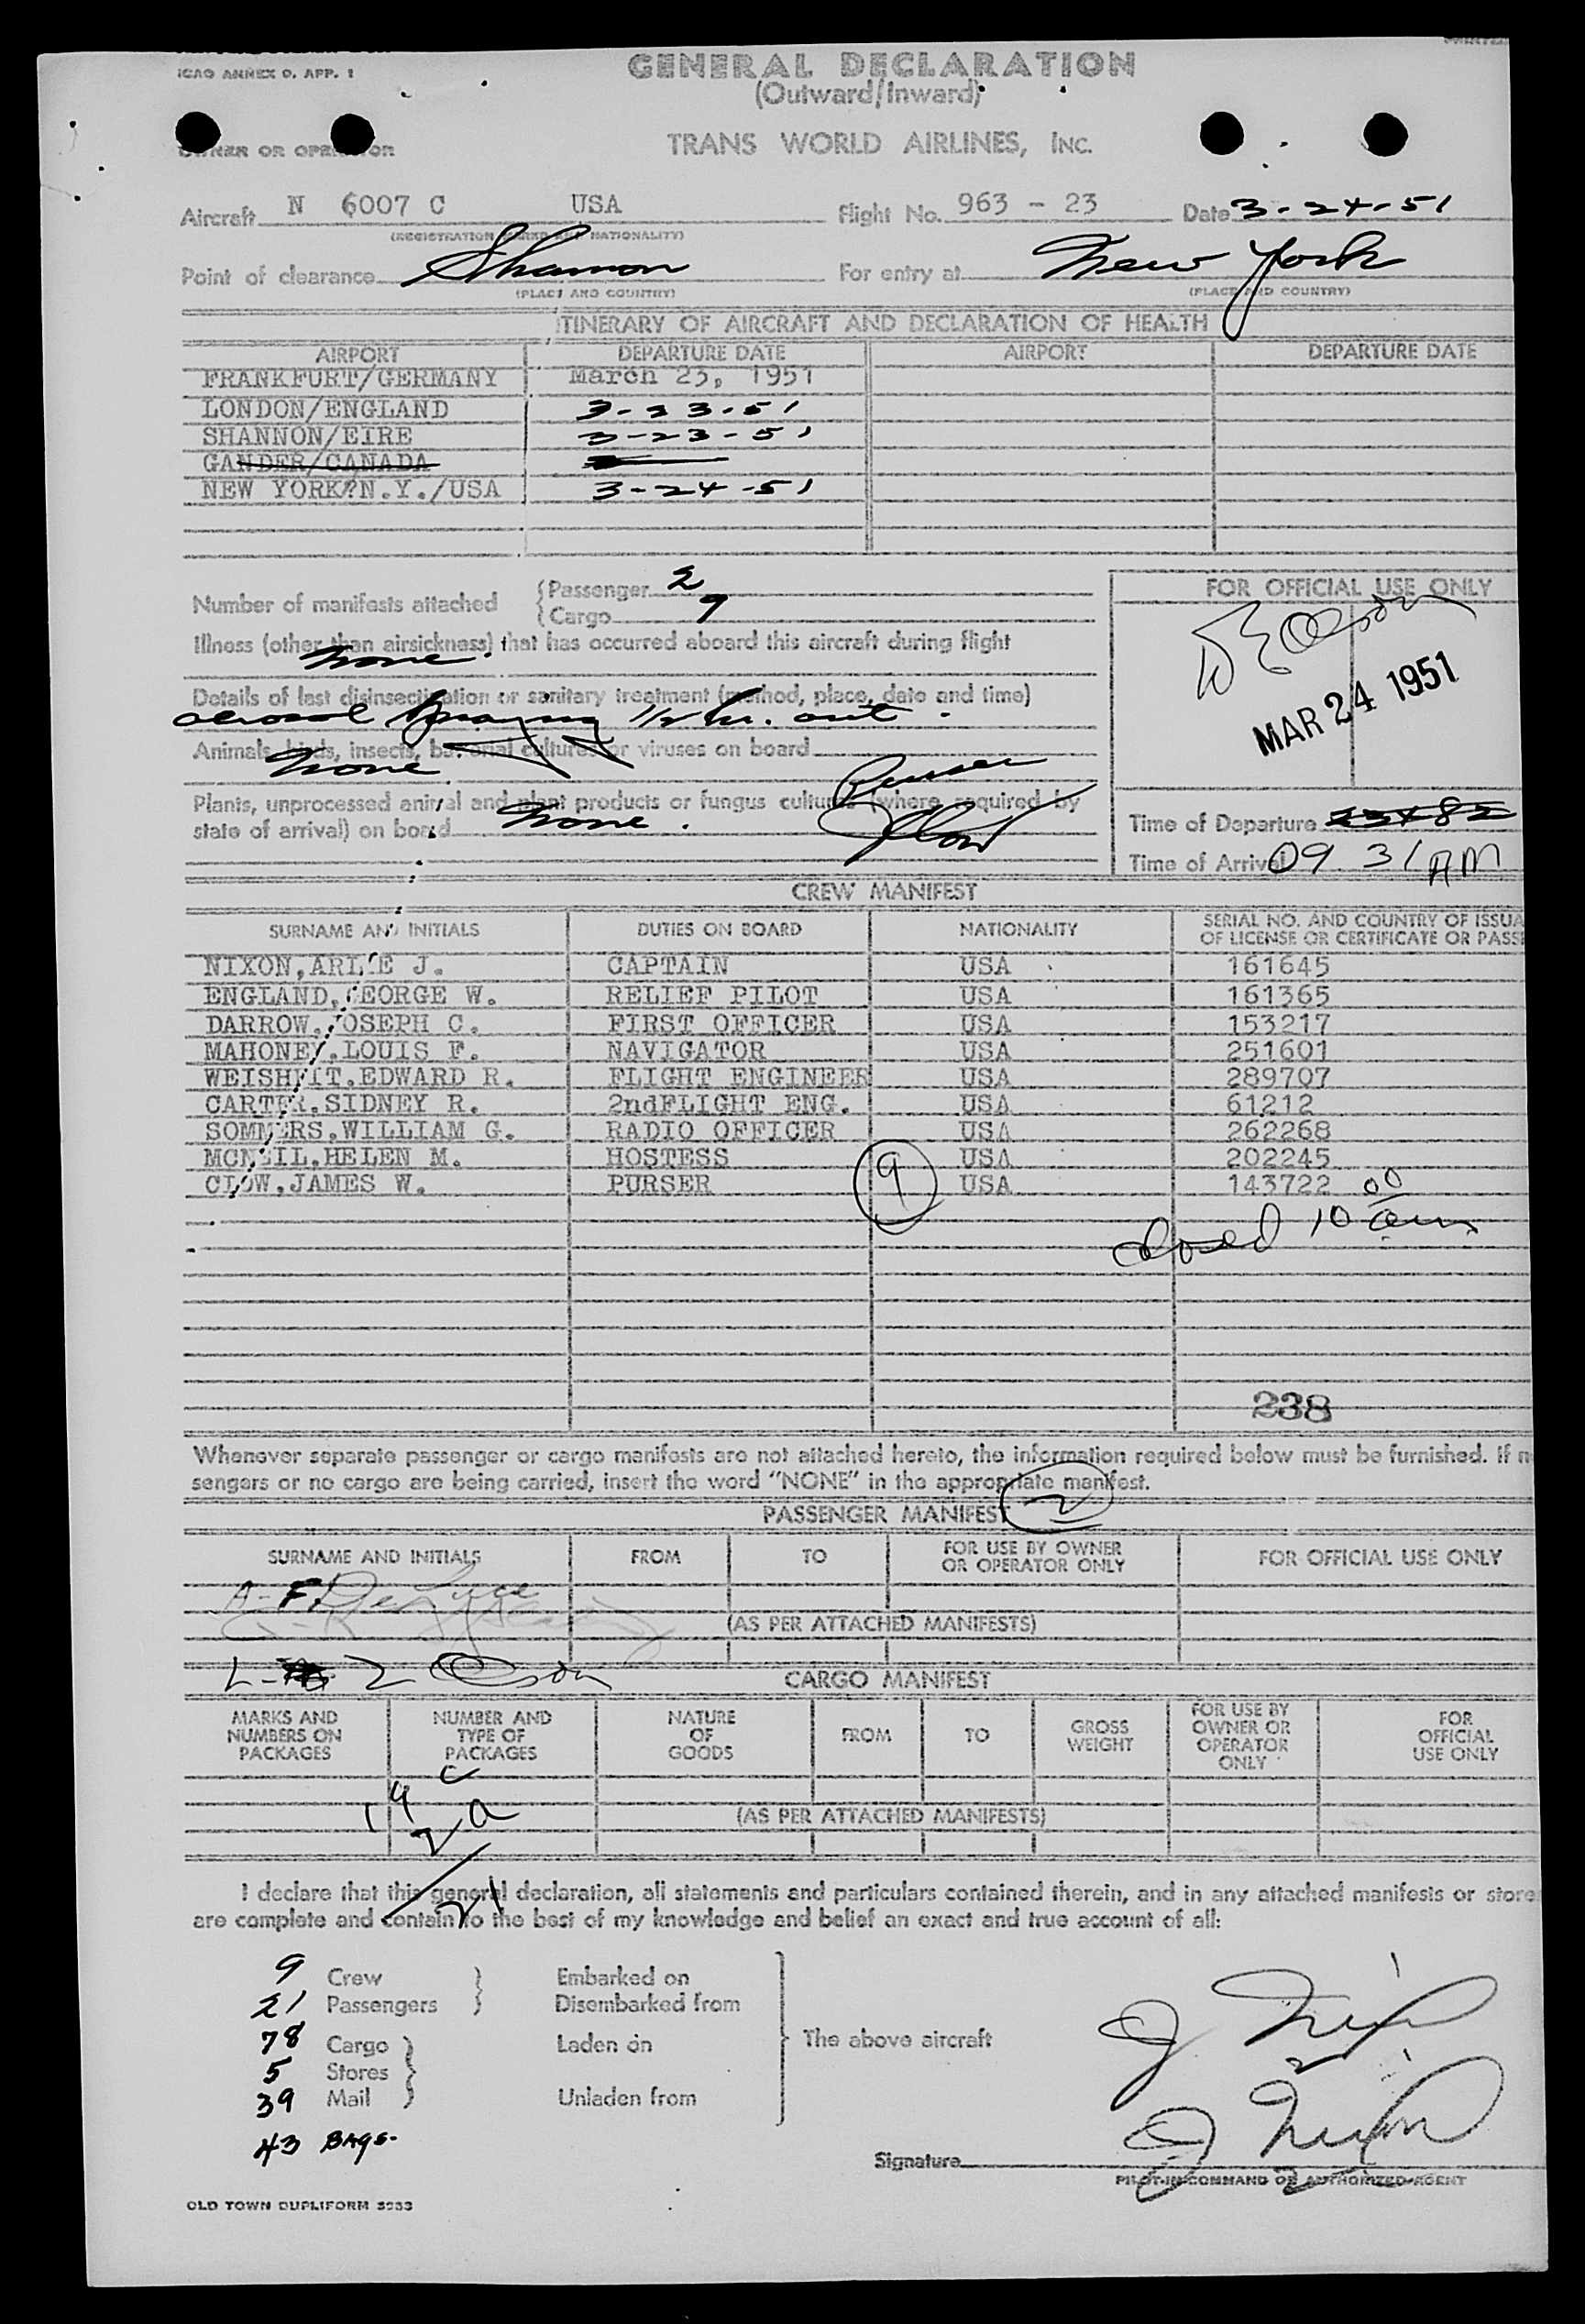 ICAO ANNEX 9, APP. 1
GENERAL DECLARATION
(Outward/Inward)
OWNER OR OPERATOR
TRANS WORLD AIRLINES, INC.
Aircraft N 6007 C USA Flight No. 963 - 23 Date 3-24-51
(REGISTRATION MARKS AND NATIONALITY)
Point of clearance Shannon For entry at New York
(PLACE AND COUNTRY) (PLACE AND COUNTRY)
ITINERARY OF AIRCRAFT AND DECLARATION OF HEALTH
AIRPORT DEPARTURE DATE AIRPORT DEPARTURE DATE
FRANKFURT/GERMANY March 23, 1951
LONDON/ENGLAND 3-23-51
SHANNON/EIRE 3-23-51
GANDER/CANADA
NEW YORK?N.Y./USA 3-24-51
Number of manifests attached
Passenger 2
Cargo 9
FOR OFFICIAL USE ONLY
Illness (other than airsickness) that has occurred aboard this aircraft during flight
None.
MAR 24 1951
Details of last disinsectization or sanitary treatment (method, place, date and time)
aerosol spraying 1/2 hr. out.
Animals, birds, insects, bacterial cultures or viruses on board
None
Purser
Plants, unprocessed animal and plant products or fungus cultures (where required by
state of arrival) on board None.
JClow
Time of Departure
Time of Arrival 09 31 AM
CREW MANIFEST
SURNAME AND INITIALS DUTIES ON BOARD NATIONALITY SERIAL NO. AND COUNTRY OF ISSUA
OF LICENSE OR CERTIFICATE OR PASS
NIXON,ARLIE J. CAPTAIN USA 161645
ENGLAND,GEORGE W. RELIEF PILOT USA 161365
DARROW,JOSEPH C. FIRST OFFICER USA 153217
MAHONEY,LOUIS F. NAVIGATOR USA 251601
WEISHFIT,EDWARD R. FLIGHT ENGINEER USA 289707
CARTER,SIDNEY R. 2ndFLIGHT ENG. USA 61212
SOMMERS,WILLIAM G. RADIO OFFICER USA 262268
MCNEIL,HELEN M. HOSTESS USA 202245
CLOW,JAMES W. PURSER 9 USA 143722
closed 10 00 am
238
Whenever separate passenger or cargo manifests are not attached hereto, the information required below must be furnished. If n
sengers or no cargo are being carried, insert the word "NONE" in the appropriate manifest.
PASSENGER MANIFEST 2
SURNAME AND INITIALS FROM TO FOR USE BY OWNER
OR OPERATOR ONLY FOR OFFICIAL USE ONLY
A-F De Luce
(AS PER ATTACHED MANIFESTS)
L- Z Olson
CARGO MANIFEST
MARKS AND
NUMBERS ON
PACKAGES
NUMBER AND
TYPE OF
PACKAGES
NATURE
OF
GOODS
FROM
TO
GROSS
WEIGHT
FOR USE BY
OWNER OR
OPERATOR
ONLY
FOR
OFFICIAL
USE ONLY
19 c
2 a
(AS PER ATTACHED MANIFESTS)
21
I declare that this general declaration, all statements and particulars contained therein, and in any attached manifests or store
are complete and contain to the best of my knowledge and belief an exact and true account of all:
9 Crew Embarked on
21 Passengers Disembarked from
78 Cargo Laden on The above aircraft
5 Stores
39 Mail Unladen from
43 Bags.
AJ Nixon
AJ Nixon
Signature
PILOT-IN-COMMAND OR AUTHORIZED AGENT
OLD TOWN DUPLIFORM